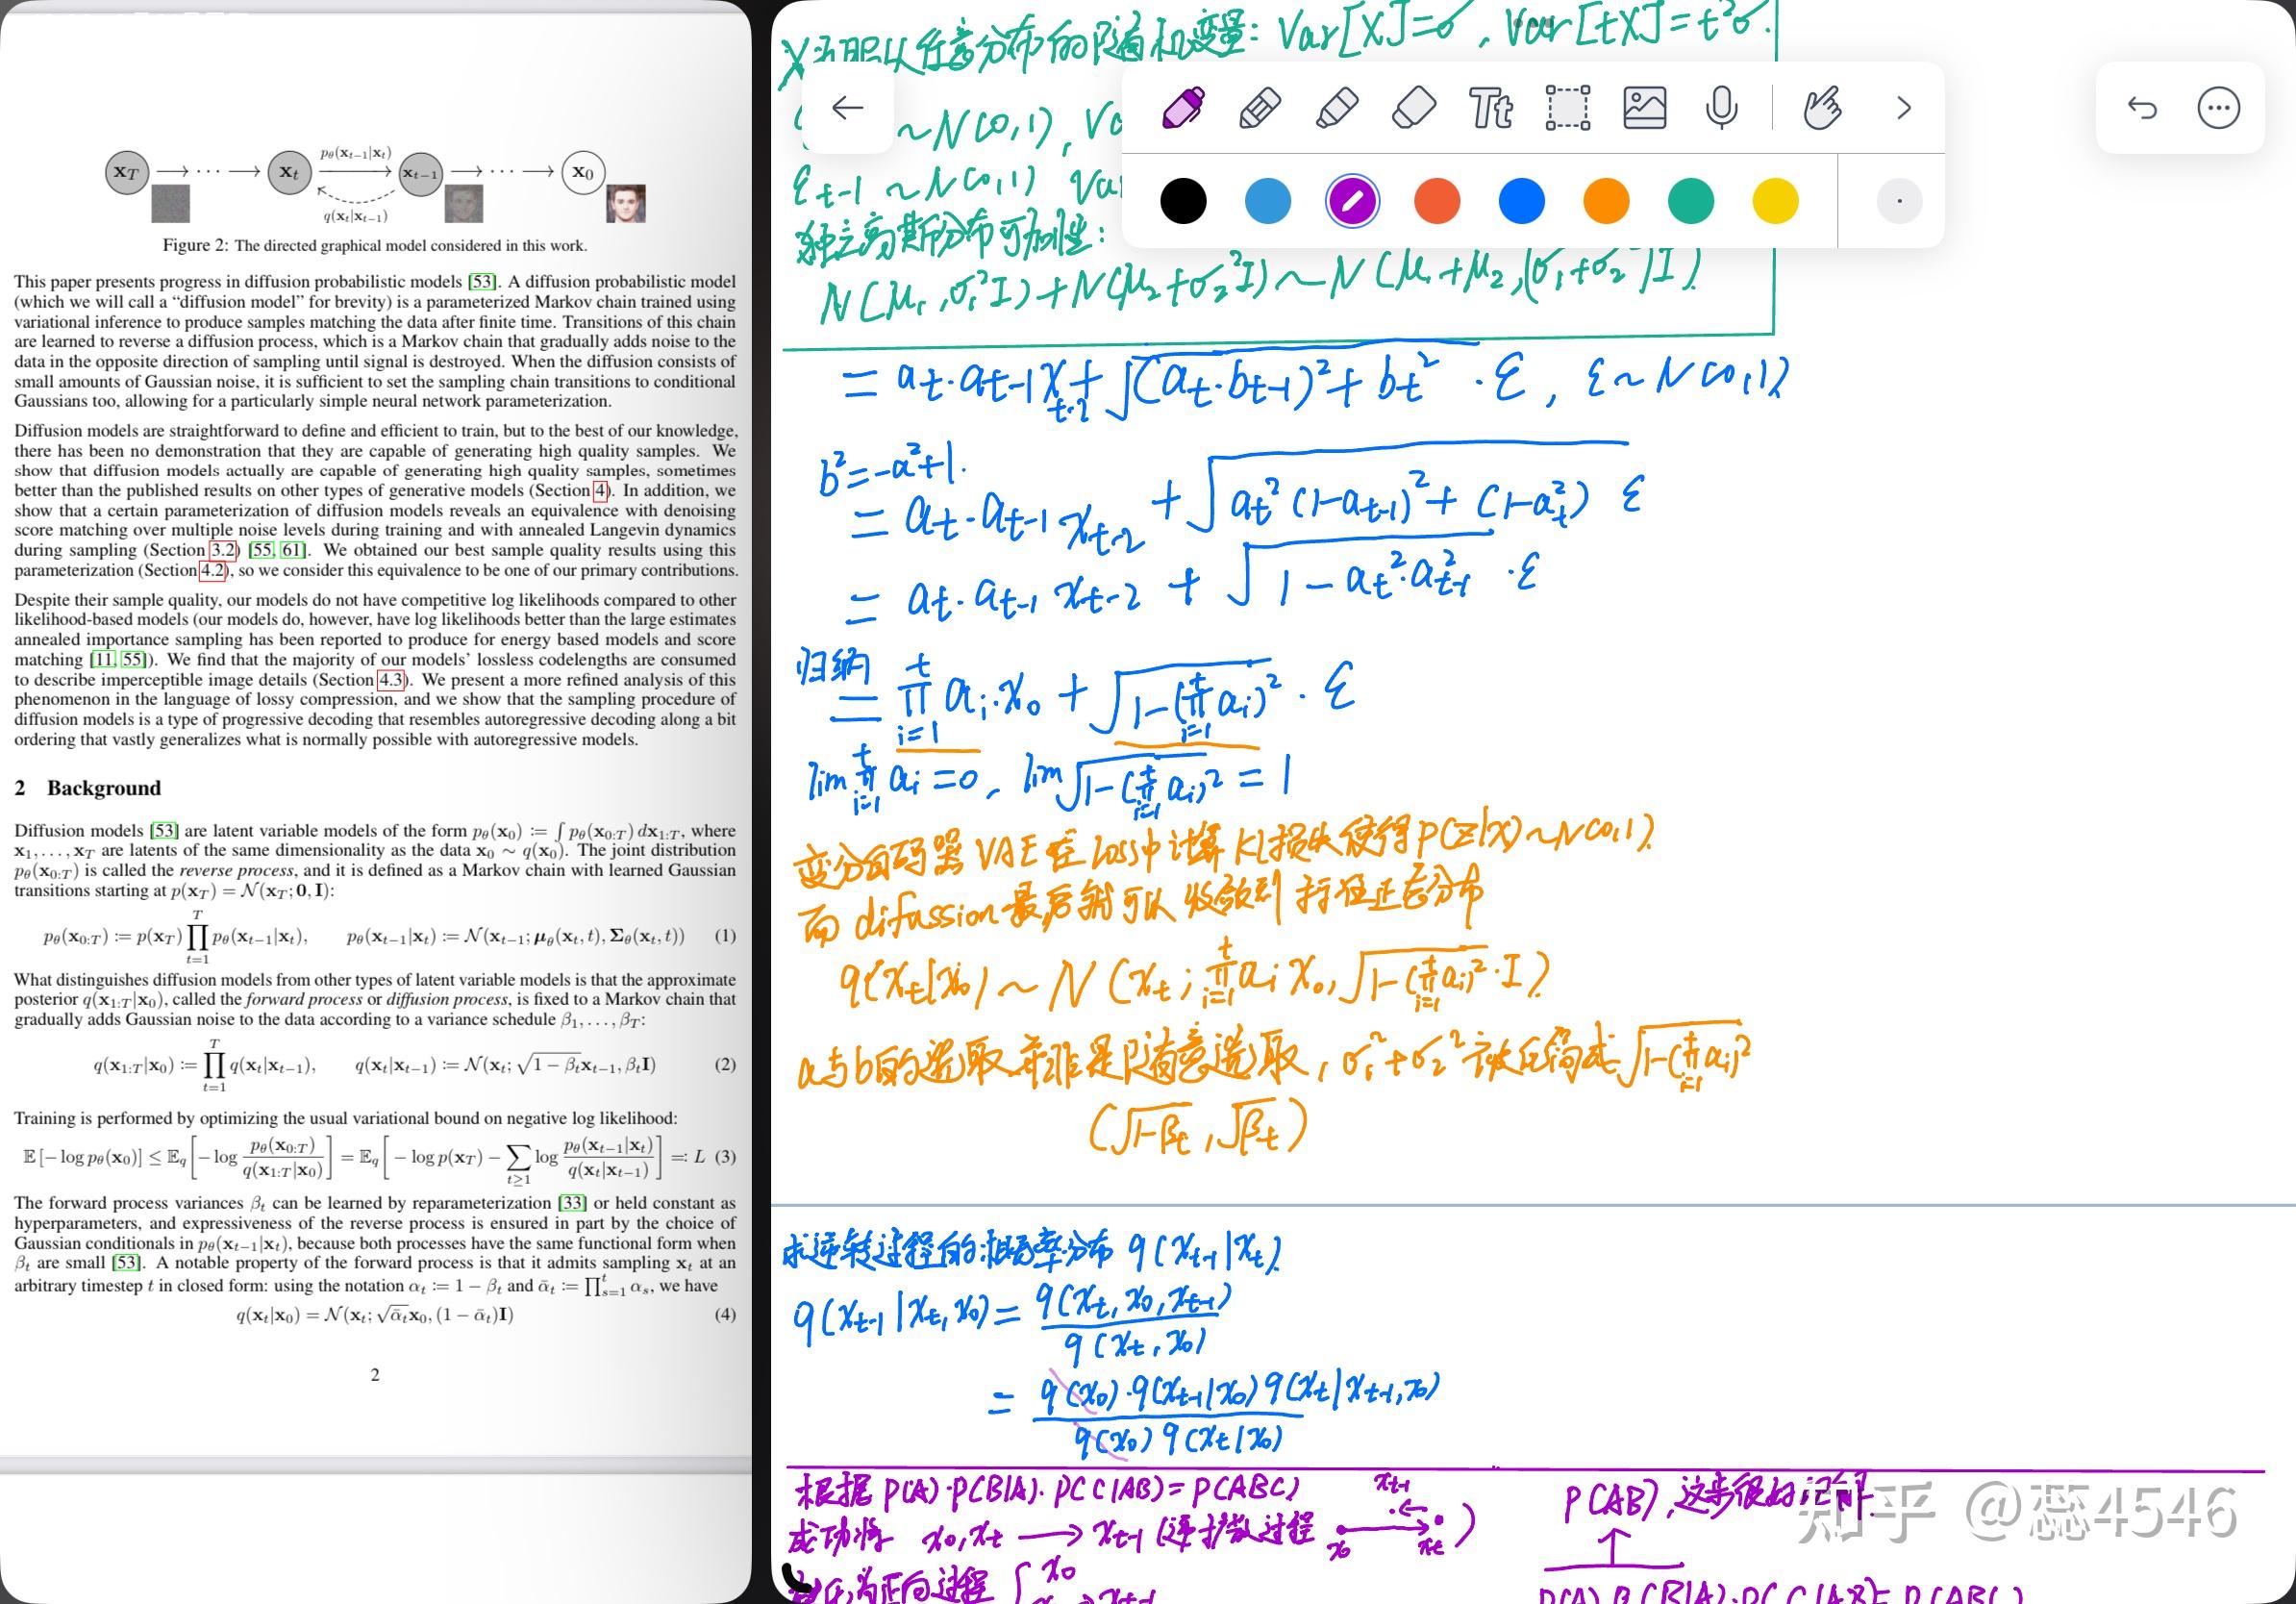 x_T → ··· → x_t p_θ(x_{t−1}|x_t) x_{t−1} → ··· → x_0
q(x_t|x_{t−1})
Figure 2: The directed graphical model considered in this work.
This paper presents progress in diffusion probabilistic models [53]. A diffusion probabilistic model
(which we will call a “diffusion model” for brevity) is a parameterized Markov chain trained using
variational inference to produce samples matching the data after finite time. Transitions of this chain
are learned to reverse a diffusion process, which is a Markov chain that gradually adds noise to the
data in the opposite direction of sampling until signal is destroyed. When the diffusion consists of
small amounts of Gaussian noise, it is sufficient to set the sampling chain transitions to conditional
Gaussians too, allowing for a particularly simple neural network parameterization.
Diffusion models are straightforward to define and efficient to train, but to the best of our knowledge,
there has been no demonstration that they are capable of generating high quality samples. We
show that diffusion models actually are capable of generating high quality samples, sometimes
better than the published results on other types of generative models (Section 4). In addition, we
show that a certain parameterization of diffusion models reveals an equivalence with denoising
score matching over multiple noise levels during training and with annealed Langevin dynamics
during sampling (Section 3.2) [55, 61]. We obtained our best sample quality results using this
parameterization (Section 4.2), so we consider this equivalence to be one of our primary contributions.
Despite their sample quality, our models do not have competitive log likelihoods compared to other
likelihood-based models (our models do, however, have log likelihoods better than the large estimates
annealed importance sampling has been reported to produce for energy based models and score
matching [11, 55]). We find that the majority of our models’ lossless codelengths are consumed
to describe imperceptible image details (Section 4.3). We present a more refined analysis of this
phenomenon in the language of lossy compression, and we show that the sampling procedure of
diffusion models is a type of progressive decoding that resembles autoregressive decoding along a bit
ordering that vastly generalizes what is normally possible with autoregressive models.
2 Background
Diffusion models [53] are latent variable models of the form p_θ(x_0) := ∫ p_θ(x_{0:T}) dx_{1:T}, where
x_1, . . . , x_T are latents of the same dimensionality as the data x_0 ∼ q(x_0). The joint distribution
p_θ(x_{0:T}) is called the reverse process, and it is defined as a Markov chain with learned Gaussian
transitions starting at p(x_T) = N(x_T; 0, I):
p_θ(x_{0:T}) := p(x_T) ∏_{t=1}^{T} p_θ(x_{t−1}|x_t), p_θ(x_{t−1}|x_t) := N(x_{t−1}; μ_θ(x_t, t), Σ_θ(x_t, t)) (1)
What distinguishes diffusion models from other types of latent variable models is that the approximate
posterior q(x_{1:T}|x_0), called the forward process or diffusion process, is fixed to a Markov chain that
gradually adds Gaussian noise to the data according to a variance schedule β_1, . . . , β_T:
q(x_{1:T}|x_0) := ∏_{t=1}^{T} q(x_t|x_{t−1}), q(x_t|x_{t−1}) := N(x_t; √(1 − β_t) x_{t−1}, β_t I) (2)
Training is performed by optimizing the usual variational bound on negative log likelihood:
E[− log p_θ(x_0)] ≤ E_q[− log p_θ(x_{0:T})/q(x_{1:T}|x_0)] = E_q[− log p(x_T) − ∑_{t≥1} log p_θ(x_{t−1}|x_t)/q(x_t|x_{t−1})] =: L (3)
The forward process variances β_t can be learned by reparameterization [33] or held constant as
hyperparameters, and expressiveness of the reverse process is ensured in part by the choice of
Gaussian conditionals in p_θ(x_{t−1}|x_t), because both processes have the same functional form when
β_t are small [53]. A notable property of the forward process is that it admits sampling x_t at an
arbitrary timestep t in closed form: using the notation α_t := 1 − β_t and ᾱ_t := ∏_{s=1}^{t} α_s, we have
q(x_t|x_0) = N(x_t; √ᾱ_t x_0, (1 − ᾱ_t)I) (4)
2
X 为服从任意分布的随机变量: Var[X]=σ, Var[tX]=t²σ.
Tt
~N(0,1), Va
ε_{t-1} ~N(0,1) Va
独立高斯分布可加性:
N(μ_1, σ_1²I)+N(μ_2+σ_2²I)~N(μ_1+μ_2,(σ_1+σ_2²)I)
= a_t·a_{t-1}x_{t-2}+√((a_t·b_{t-1})²+b_t²)·ε, ε~N(0,1)
b²=-a²+1.
= a_t·a_{t-1}x_{t-2} + √(a_t²(1-a_{t-1})²+(1-a_t²)) ε
= a_t·a_{t-1}x_{t-2} + √(1-a_t²·a_{t-1}²)·ε
归纳
= ∏_{i=1}^{t} a_i·x_0 + √(1-(∏_{i=1}^{t} a_i)²)·ε
lim ∏_{i=1}^{t} a_i=0, lim √(1-(∏_{i=1}^{t} a_i)²) = 1
变分自码器 VAE 在 Loss中计算 KL损失使得 P(Z|X)~N(0,1)
而 difussion 最后就可以收敛到标准正态分布
q(x_t|x_0) ~ N(x_t; ∏_{i=1}^{t} a_i x_0, √(1-(∏_{i=1}^{t} a_i)²)·I)
a与b的选取并非是随意选取, σ_1²+σ_2² 被化简成 √(1-(∏_{i=1}^{t} a_i)²)
(√(1-β_t), √β_t)
求逆转过程的概率分布 q(x_{t-1}|x_t)
q(x_{t-1}|x_t,x_0)= q(x_t,x_0,x_{t-1})/q(x_t,x_0)
= q(x_0)·q(x_{t-1}|x_0)q(x_t|x_{t-1},x_0)/q(x_0)q(x_t|x_0)
根据 P(A)·P(B|A)·P(C|AB)=P(ABC)
P(AB),这步很好
成功将 x_0,x_t → x_{t-1} (逆扩散过程 x_0 x_t x_{t-1})
为正向过程 { x_0
P(A)·P(B|A)·P(C|AB)=P(ABC)
知乎 @蕊4546